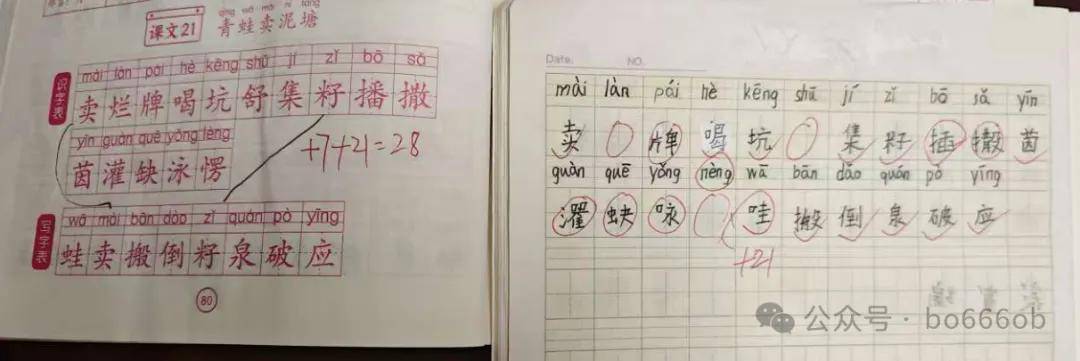 课文21
qīng wā mài ní táng
青蛙卖泥塘
识字表
mài làn pái hē kēng shū jí zǐ bō sǎ
卖烂牌喝坑舒集籽播撒
yīn guàn quē yǒng lèng
茵灌缺泳愣
+7+21=28
写字表
wā mài bān dǎo zǐ quán pò yīng
蛙卖搬倒籽泉破应
80
Date. NO.
mài làn pái hè kēng shū jí zǐ bō sǎ yīn
卖 牌 喝 坑 集 籽 插 撒 茵
guàn quē yǒng nèng wā bān dǎo quán pò yīng
灌 蚗 咏 哇 搬 倒 泉 破 应
+21
公众号·bo666ob